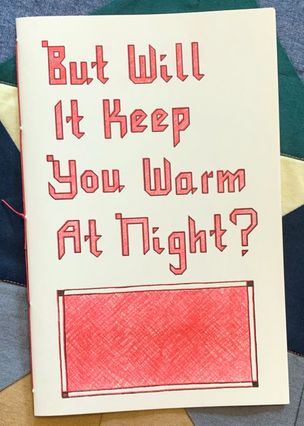 But Will
It Keep
You Warm
At Night?